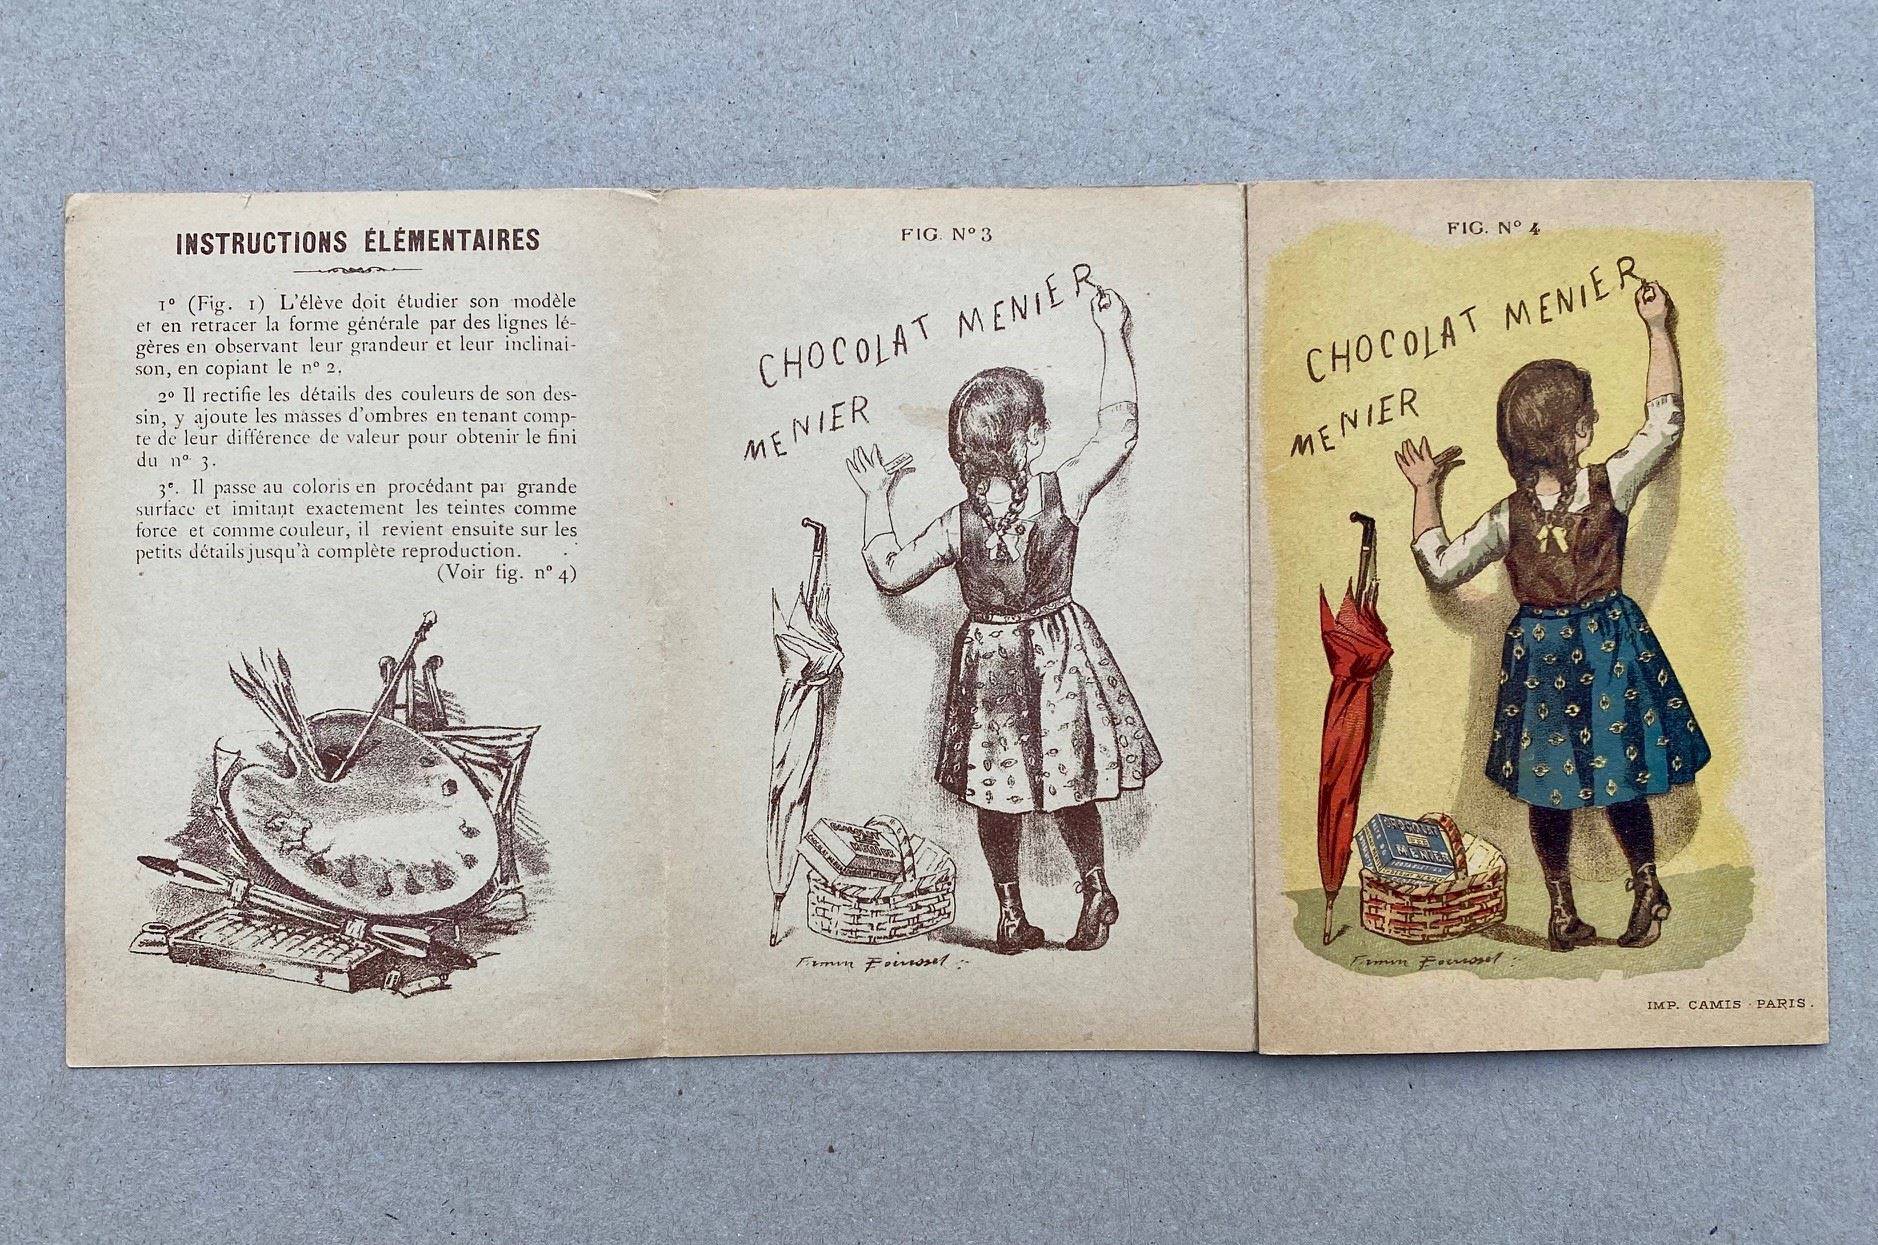 INSTRUCTIONS ÉLÉMENTAIRES
1º (Fig. 1) L'élève doit étudier son modèle
et en retracer la forme générale par des lignes lé-
gères en observant leur grandeur et leur inclinai-
son, en copiant le nº 2.
2º Il rectifie les détails des couleurs de son des-
sin, y ajoute les masses d'ombres en tenant comp-
te de leur différence de valeur pour obtenir le fini
du nº 3.
3e. Il passe au coloris en procédant par grande
surface et imitant exactement les teintes comme
force et comme couleur, il revient ensuite sur les
petits détails jusqu'à complète reproduction.
(Voir fig. nº 4)
FIG. Nº 3
CHOCOLAT MENIER
MENIER
CHOCOLAT
Firmin Bouisset
FIG. Nº 4
CHOCOLAT MENIER
MENIER
CHOCOLAT
MENIER
Firmin Bouisset
IMP. CAMIS · PARIS.